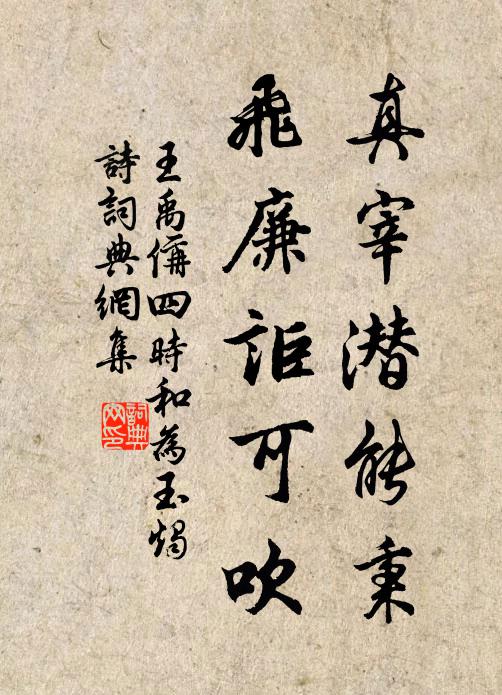 真宰潜能秉
飛廉詎可吹
王禹偁四時和為玉燭
詩詞典網集
詞典網印